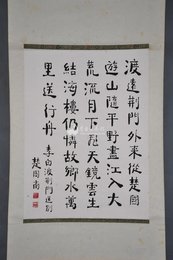 渡遠荆門外來從楚國
遊山隨平野盡江入大
荒流月下飛天鏡雲生
結海樓仍憐故鄉水萬
里送行舟 李白渡荆門送別
楚圖南